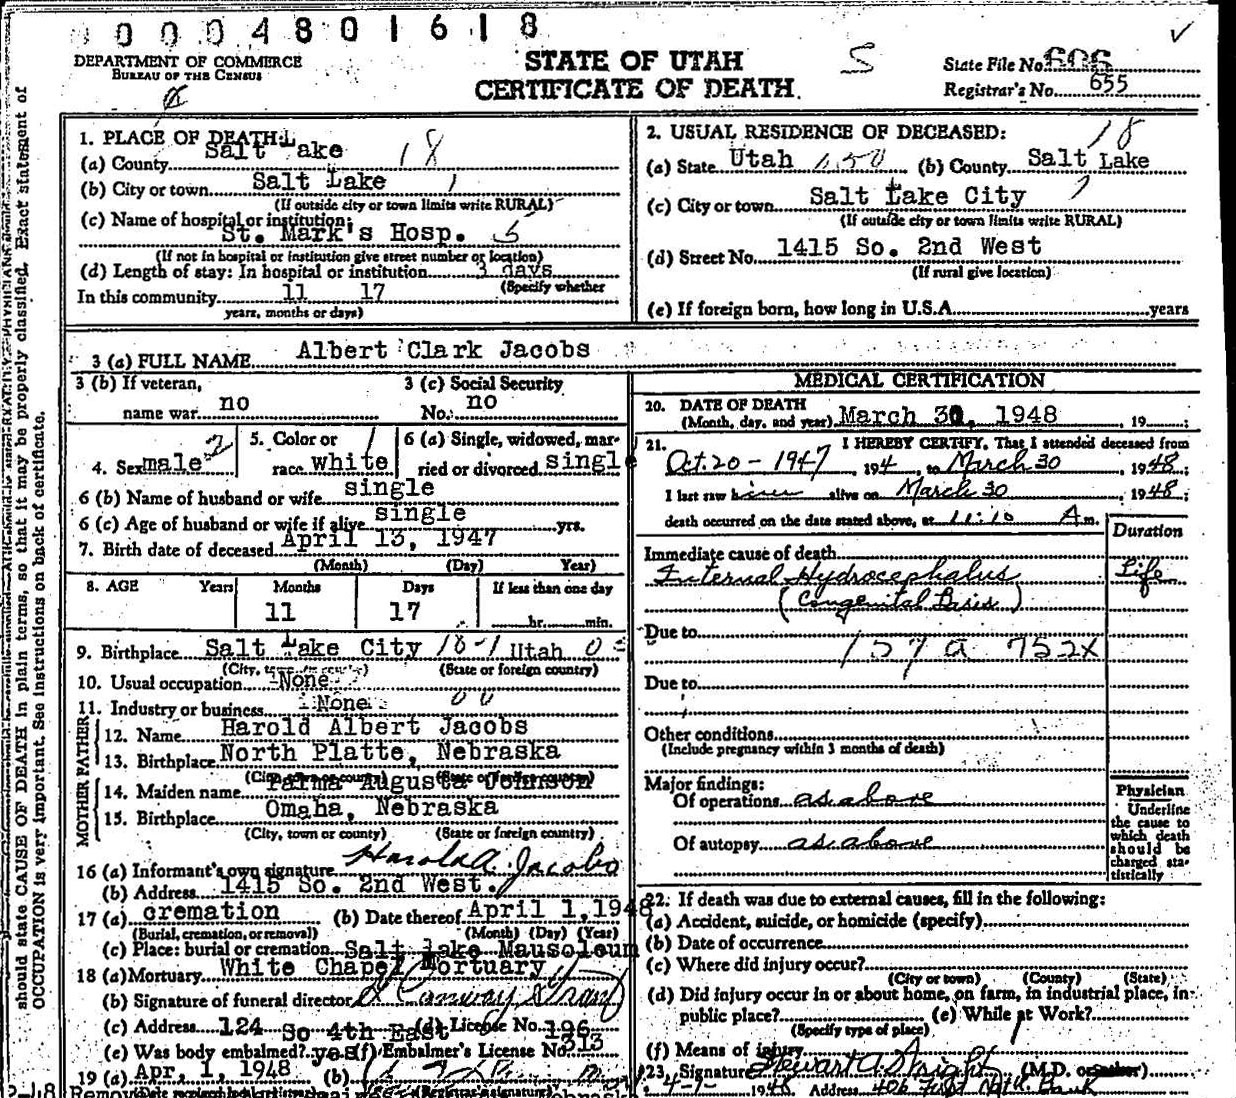 0 0 0 4 8 0 1 6 1 8
DEPARTMENT OF COMMERCE
BUREAU OF THE CENSUS
STATE OF UTAH
CERTIFICATE OF DEATH
S
State File No. 606
Registrar's No. 655
should state CAUSE OF DEATH in plain terms, so that it may be properly classified. Exact statement of
OCCUPATION is very important. See instructions on back of certificate.
1. PLACE OF DEATH:
(a) County Salt Lake 18
(b) City or town Salt Lake 1
(If outside city or town limits write RURAL)
(c) Name of hospital or institution:
St. Mark's Hosp. 5
(If not in hospital or institution give street number or location)
(d) Length of stay: In hospital or institution 3 days
(Specify whether
In this community 11 17
years, months or days)
2. USUAL RESIDENCE OF DECEASED:
18
(a) State Utah (b) County Salt Lake
(c) City or town Salt Lake City
(If outside city or town limits write RURAL)
(d) Street No. 1415 So. 2nd West
(If rural give location)
(e) If foreign born, how long in U.S.A. years
3 (a) FULL NAME Albert Clark Jacobs
3 (b) If veteran,
name war no
3 (c) Social Security
No. no
4. Sex male 2
5. Color or
race white 1
6 (a) Single, widowed, mar-
ried or divorced single
6 (b) Name of husband or wife single
6 (c) Age of husband or wife if alive single yrs.
7. Birth date of deceased April 13, 1947
(Month) (Day) Year)
8. AGE Years Months Days If less than one day
11 17 hr. min.
9. Birthplace Salt Lake City 18-1 Utah
(City, town or county) (State or foreign country)
10. Usual occupation None
11. Industry or business None 00
FATHER
12. Name Harold Albert Jacobs
13. Birthplace North Platte, Nebraska
(City, town or county) (State or foreign country)
MOTHER
14. Maiden name Augusta Johnson
15. Birthplace Omaha, Nebraska
(City, town or county) (State or foreign country)
16 (a) Informant's own signature Harold A. Jacobs
(b) Address 1415 So. 2nd West.
17 (a) cremation (b) Date thereof April 1, 1948
(Burial, cremation, or removal) (Month) (Day) (Year)
(c) Place: burial or cremation Salt Lake Mausoleum
18 (a) Mortuary White Chapel Mortuary
(b) Signature of funeral director
(c) Address 124 So 4th East (d) License No. 196
(e) Was body embalmed? yes (f) Embalmer's License No. 313
19 (a) Apr, 1, 1948 (b)
MEDICAL CERTIFICATION
20. DATE OF DEATH
(Month, day, and year) March 30, 1948 , 19 ;
21. I HEREBY CERTIFY, That I attended deceased from
Oct. 20 - 1947 , 194 , to March 30 , 1948;
I last saw him alive on March 30 , 1948;
death occurred on the date stated above, at 11:10 A m.
Duration
Immediate cause of death
Internal Hydrocephalus Life
(Congenital Basis)
Due to
157 a 752X
Due to
Other conditions
(Include pregnancy within 3 months of death)
Major findings:
Of operations as above
Of autopsy as above
Physician
Underline
the cause to
which death
should be
charged sta-
tistically
22. If death was due to external causes, fill in the following:
(a) Accident, suicide, or homicide (specify)
(b) Date of occurrence
(c) Where did injury occur?
(City or town) (County) (State)
(d) Did injury occur in or about home, on farm, in industrial place, in
public place? (e) While at Work?
(Specify type of place)
(f) Means of injury
23. Signature Stewart A. Wright (M.D. or other)
4-1- 1948 Address 406 First Natl. Bank